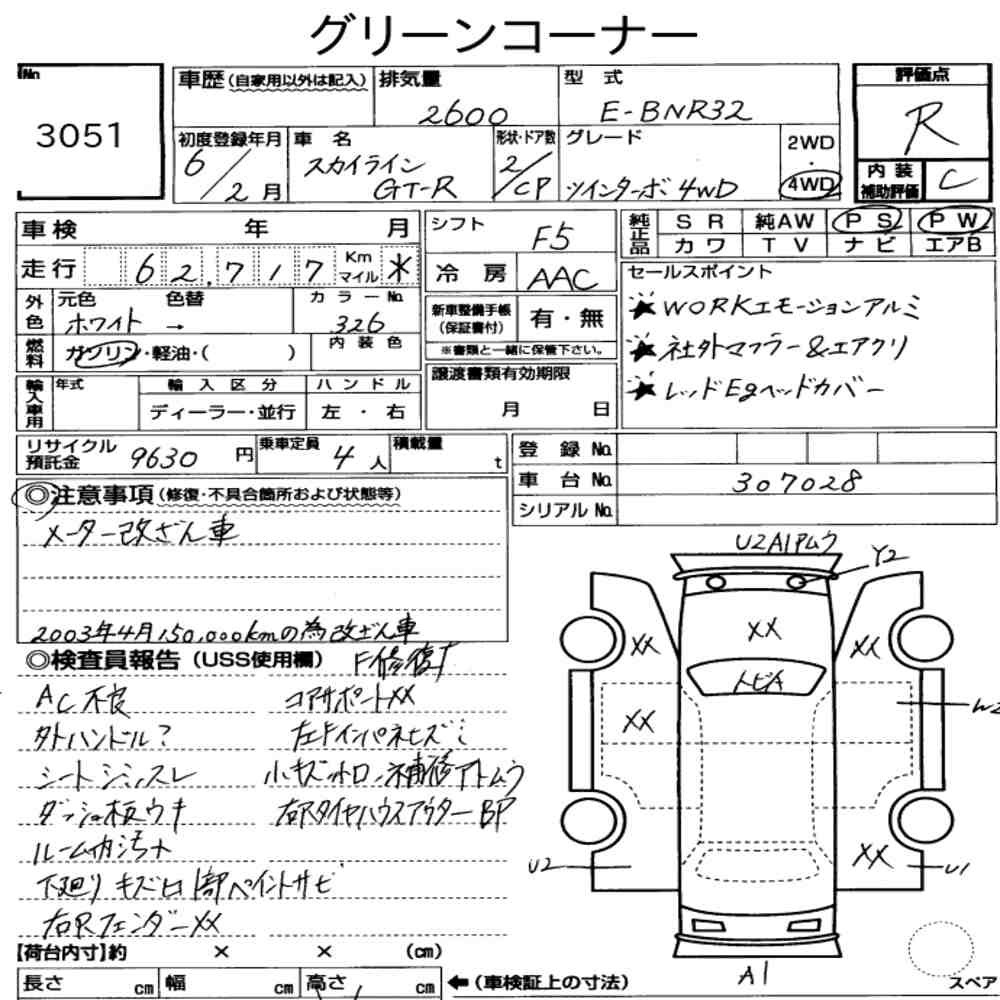 グリーンコーナー
No
3051
車歴(自家用以外は記入)
排気量
2600
型式
E-BNR32
評価点
R
初度登録年月
6/2月
車名
スカイライン
GT-R
形状・ドア数
2/CP
グレード
ツインターボ 4WD
2WD
・
4WD
内装
補助評価
C
車検 年 月
シフト
F5
純正品
SR 純AW PS PW
カワ TV ナビ エアB
走行 62,717 Km マイル *
冷房
AAC
セールスポイント
★WORKエモーションアルミ
★社外マフラー&エアクリ
★レッドEgヘッドカバー
外色
元色 色替
ホワイト →
カラーNo.
326
新車整備手帳
(保証書付)
有・無
※書類と一緒に保管下さい。
燃料
ガソリン・軽油・( )
内装色
譲渡書類有効期限
月 日
輸入車用
年式
輸入区分
ディーラー・並行
ハンドル
左・右
リサイクル
預託金
9630円
乗車定員
4人
積載量
t
登録No.
車台No.
307028
シリアルNo.
◎注意事項(修復・不具合箇所および状態等)
メーター改ざん車
2003年4月150,000kmの為改ざん車
◎検査員報告(USS使用欄)
F修復
AC不良
コアサポートXX
外ハンドル?
シートシミ、スレ
ダッシュ板ウキ
右Rタイヤハウスアウター BP
ルーム内汚れ
下廻りキズ凹1部ペイントサビ
右RフェンダーXX
【荷台内寸】約 × × (cm)
長さ cm 幅 cm 高さ cm
←(車検証上の寸法)
U2A1Pムラ
Y2
XX
XX
XX
トビA
XX
W2
XX
U2
U1
A1
スペア